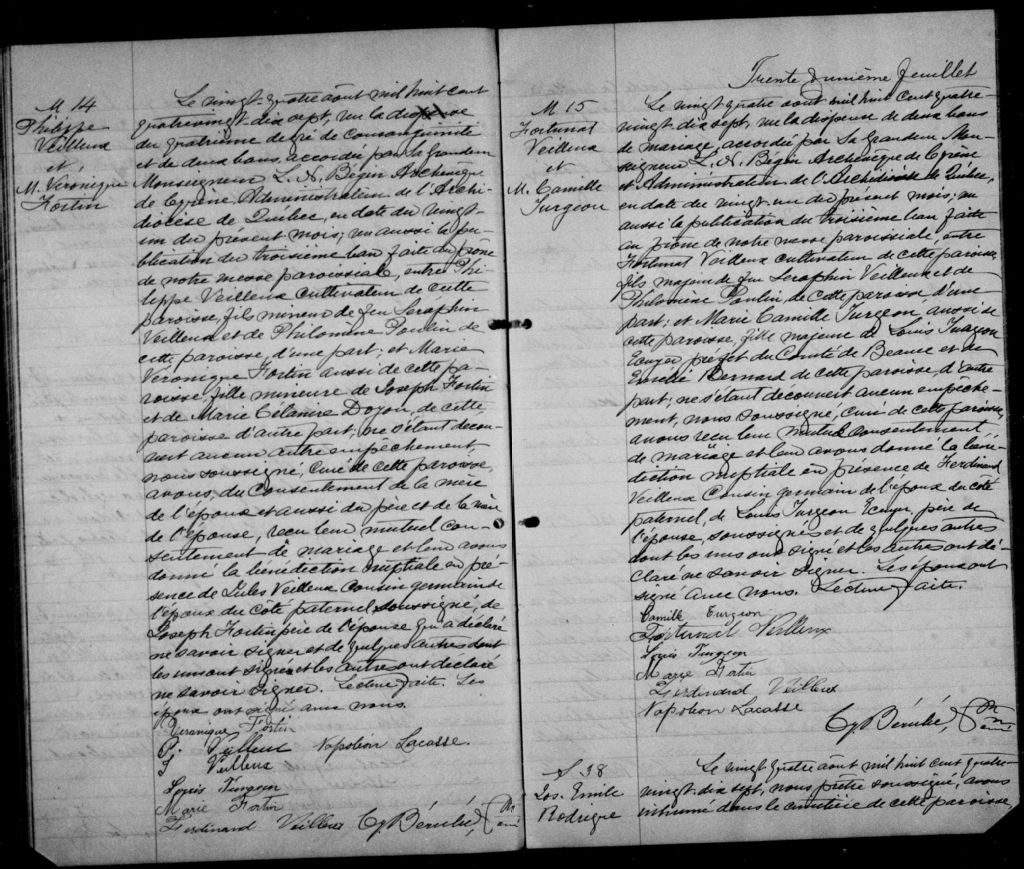 M 14
Philippe
Veilleux
et
M. Véronique
Fortin
Le vingt-quatre août mil huit cent
quatrevingt-dix sept, vu la dispense
du quatrième degré de consanguinité
et de deux bans accordée par Sa Grandeur
Monseigneur L. N. Bégin Archevêque
de Cyrène, Administrateur de l'Archi-
diocèse de Québec, en date du vingt-
un du présent mois; vu aussi la pu-
blication du troisième ban faite au prône
de notre messe paroissiale, entre Phi-
lippe Veilleux cultivateur de cette
paroisse, fils mineur de feu Seraphin
Veilleux et de Philomène Poulin de
cette paroisse, d'une part; et Marie
Véronique Fortin aussi de cette pa-
roisse, fille mineure de Joseph Fortin
et de Marie Célanire Doyon, de cette
paroisse d'autre part; ne s'étant décou-
vert aucun autre empêchement,
nous soussigné, Curé de cette paroisse,
avons, du consentement de la mère
de l'époux et aussi du père et de la mère
de l'épouse, reçu leur mutuel con-
sentement de mariage et leur avons
donné la bénédiction nuptiale en pré-
sence de Jules Veilleux cousin germain de
l'époux du côté paternel, soussigné, de
Joseph Fortin père de l'épouse qui a déclaré
ne savoir signer et de quelques autres dont
les uns ont signé et les autres ont déclaré
ne savoir signer. Lecture faite. Les
époux ont signé avec nous.
Véronique Fortin
P. Veilleux Napoléon Lacasse.
J Veilleux
Louis Turgeon
Marie Fortin
Ferdinand Veilleux Cy Bérubé, Ptr
curé
Trente deuxième feuillet
M 15
Fortunat
Veilleux
et
M. Camille
Turgeon
Le vingt quatre août mil huit cent quatre-
vingt-dix sept, vu la dispense de deux bans
de mariage, accordée par Sa Grandeur Mon-
seigneur L. N. Bégin Archevêque de Cyrène
et Administrateur de l'Archidiocèse de Québec,
en date du vingt-un du présent mois; vu
aussi la publication du troisième ban faite
au prône de notre messe paroissiale, entre
Fortunat Veilleux cultivateur de cette paroisse,
fils majeur de feu Seraphin Veilleux et de
Philomène Poulin de cette paroisse d'une
part; et Marie Camille Turgeon aussi de
cette paroisse, fille majeure de Louis Turgeon
Ecuyer préfet du Comté de Beauce et de
Emélie Bernard de cette paroisse, d'autre
part; ne s'étant découvert aucun empêche-
ment, nous soussigné, Curé de cette paroisse,
avons reçu leur mutuel consentement
de mariage et leur avons donné la béné-
diction nuptiale en présence de Ferdinand
Veilleux Cousin germain de l'époux du côté
paternel, de Louis Turgeon Ecuyer, père de
l'épouse, soussignés et de quelques autres
dont les uns ont signé et les autres ont dé-
claré ne savoir signer. Les époux ont
signé avec nous. Lecture faite.
Camille Turgeon
Fortunat Veilleux
Louis Turgeon
Marie Fortin
Ferdinand Veilleux
Napoléon Lacasse
Cy Bérubé, Ptr
curé
S 38
Jos. Emile
Rodrigue
Le vingt quatre août mil huit cent quatre-
vingt-dix sept, nous prêtre soussigné, avons
inhumé dans le cimetière de cette paroisse,